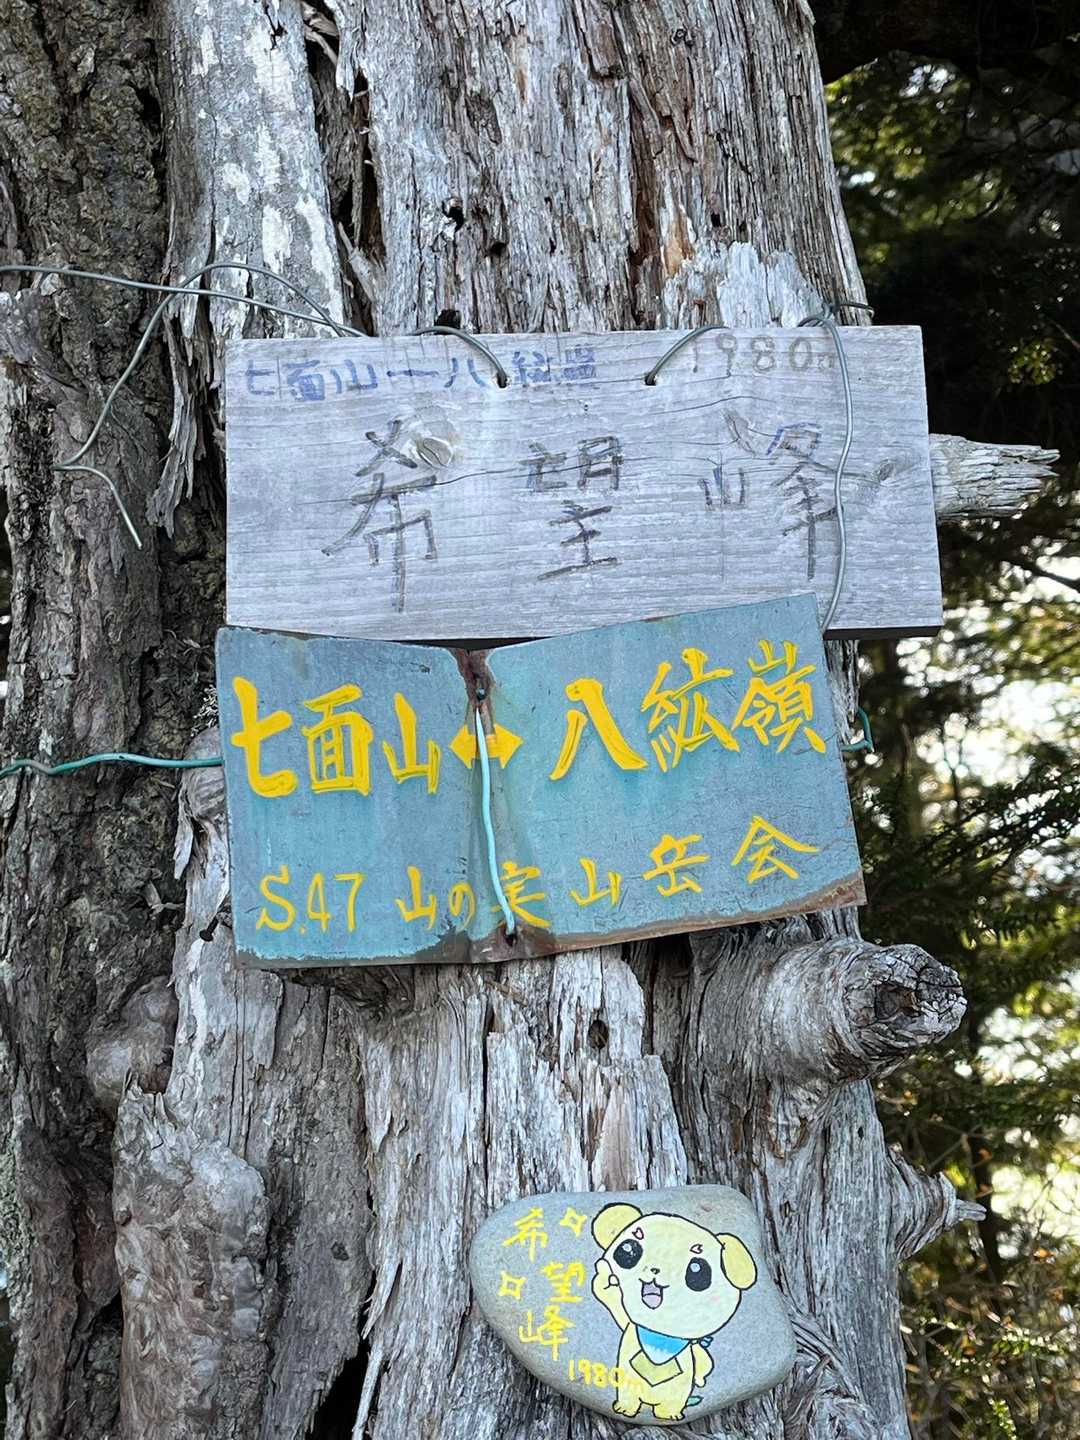 七面山一八紘嶺
1980m
希望峰
七面山↔八紘嶺
S.47 山の実山岳会
希
望
峰
1980m